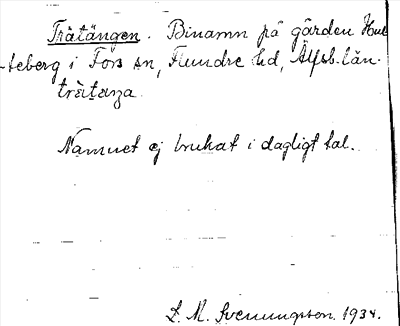 Tråtången. Binamn på gården Hul-
teberg i Fors sn, Flundre hd, Älfsb. län.
tråtaŋa
Namnet ej brukat i dagligt tal.
L. M. Svenungsson. 1934.